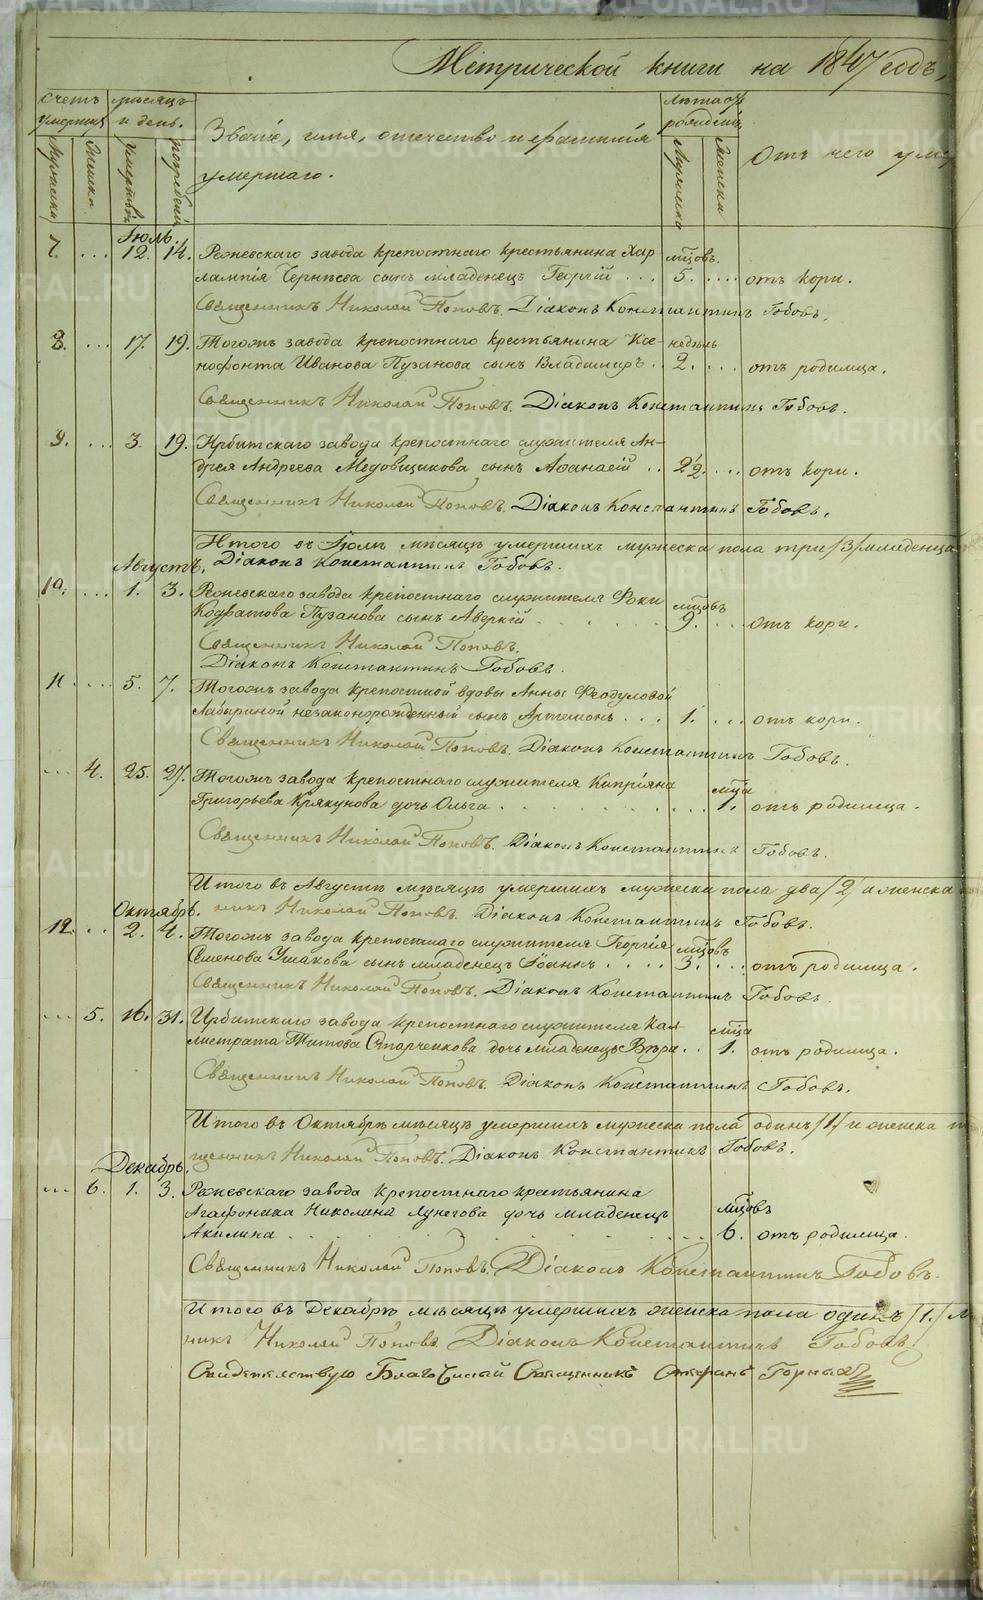 Метрической книги на 1847 годъ,
Счетъ умершихъ
Мужеска
Женска
Мѣсяцъ и день.
умертвія
погребенія
Званіе, имя, отечество и фамилія
умершаго.
Лѣта
Мужеска
Женска
Отъ чего умер
Іюль.
7. ... 12. 14. Режевскаго завода крепостнаго крестьянина Хар мцовъ.
лампія Чернѣева сынъ младенецъ Георгій ... 5. .... отъ кори.
Священникъ Николай Поповъ. Діаконъ Константинъ Гобовъ.
8. ... 17. 19. Тогожъ завода крепостнаго крестьянина Ксе- недѣль
нофонта Иванова Пузанова сынъ Владимиръ .. 2. ... отъ родимца.
Священникъ Николай Поповъ. Діаконъ Константинъ Гобовъ.
9. ... 3. 19. Ирбитскаго завода крепостнаго служителя Ан-
дрея Андреева Медовщикова сынъ Аѳанасій .. 2½. ... отъ кори.
Священникъ Николай Поповъ. Діаконъ Константинъ Гобовъ.
Итого въ Іюлѣ мѣсяцѣ умершихъ мужеска пола три /3/ младенца
Августъ. Діаконъ Константинъ Гобовъ.
10. ... 1. 3. Режевскаго завода крепостнаго служителя Фоки мцовъ
Кодратова Пузанова сынъ Аверкій ...... 9. ... отъ кори.
Священникъ Николай Поповъ.
Діаконъ Константинъ Гобовъ.
11. .... 5. 7. Тогожъ завода крепостной вдовы Анны Ѳеодуловой
Лабыриной незаконорожденный сынъ Артемонъ ... 1. ... отъ кори.
Священникъ Николай Поповъ. Діаконъ Константинъ Гобовъ.
... 4. 25. 27. Тогожъ завода крепостнаго служителя Кипріяна мца
Григорьева Крякунова дочь Ольга ......... 1. отъ родимца.
Священникъ Николай Поповъ. Діаконъ Константинъ Гобовъ.
Итого въ Августѣ мѣсяцѣ умершихъ мужеска пола два /2/ и женска
Октябрь. никъ Николай Поповъ. Діаконъ Константинъ Гобовъ.
12. .. 2. 4. Тогожъ завода крепостнаго служителя Георгія мцовъ
Семенова Ушакова сынъ младенецъ Іоаннъ .... 3. ... отъ родимца.
Священникъ Николай Поповъ. Діаконъ Константинъ Гобовъ.
... 5. 16. 31. Ирбитскаго завода крепостнаго служителя Кал- мца
листрата Титова Старченкова дочь младенецъ Вѣра .. 1. отъ родимца.
Священникъ Николай Поповъ. Діаконъ Константинъ Гобовъ.
Итого въ Октябрѣ мѣсяцѣ умершихъ мужеска пола одинъ /1/ и женска
щенникъ Николай Поповъ. Діаконъ Константинъ Гобовъ.
Декабрь.
... 6. 1. 3. Режевскаго завода крепостнаго крестьянина
Агафоника Николина Лунегова дочь младенецъ мцовъ
Акилина ......... 6. отъ родимца.
Священникъ Николай Поповъ. Діаконъ Константинъ Гобовъ.
Итого въ Декабрѣ мѣсяцѣ умершихъ женска пола одинъ /1./
никъ Николай Поповъ. Діаконъ Константинъ Гобовъ.
Свидетельствую Благочинный Священникъ Стефанъ Горныхъ
METRIKI.GASO-URAL.RU